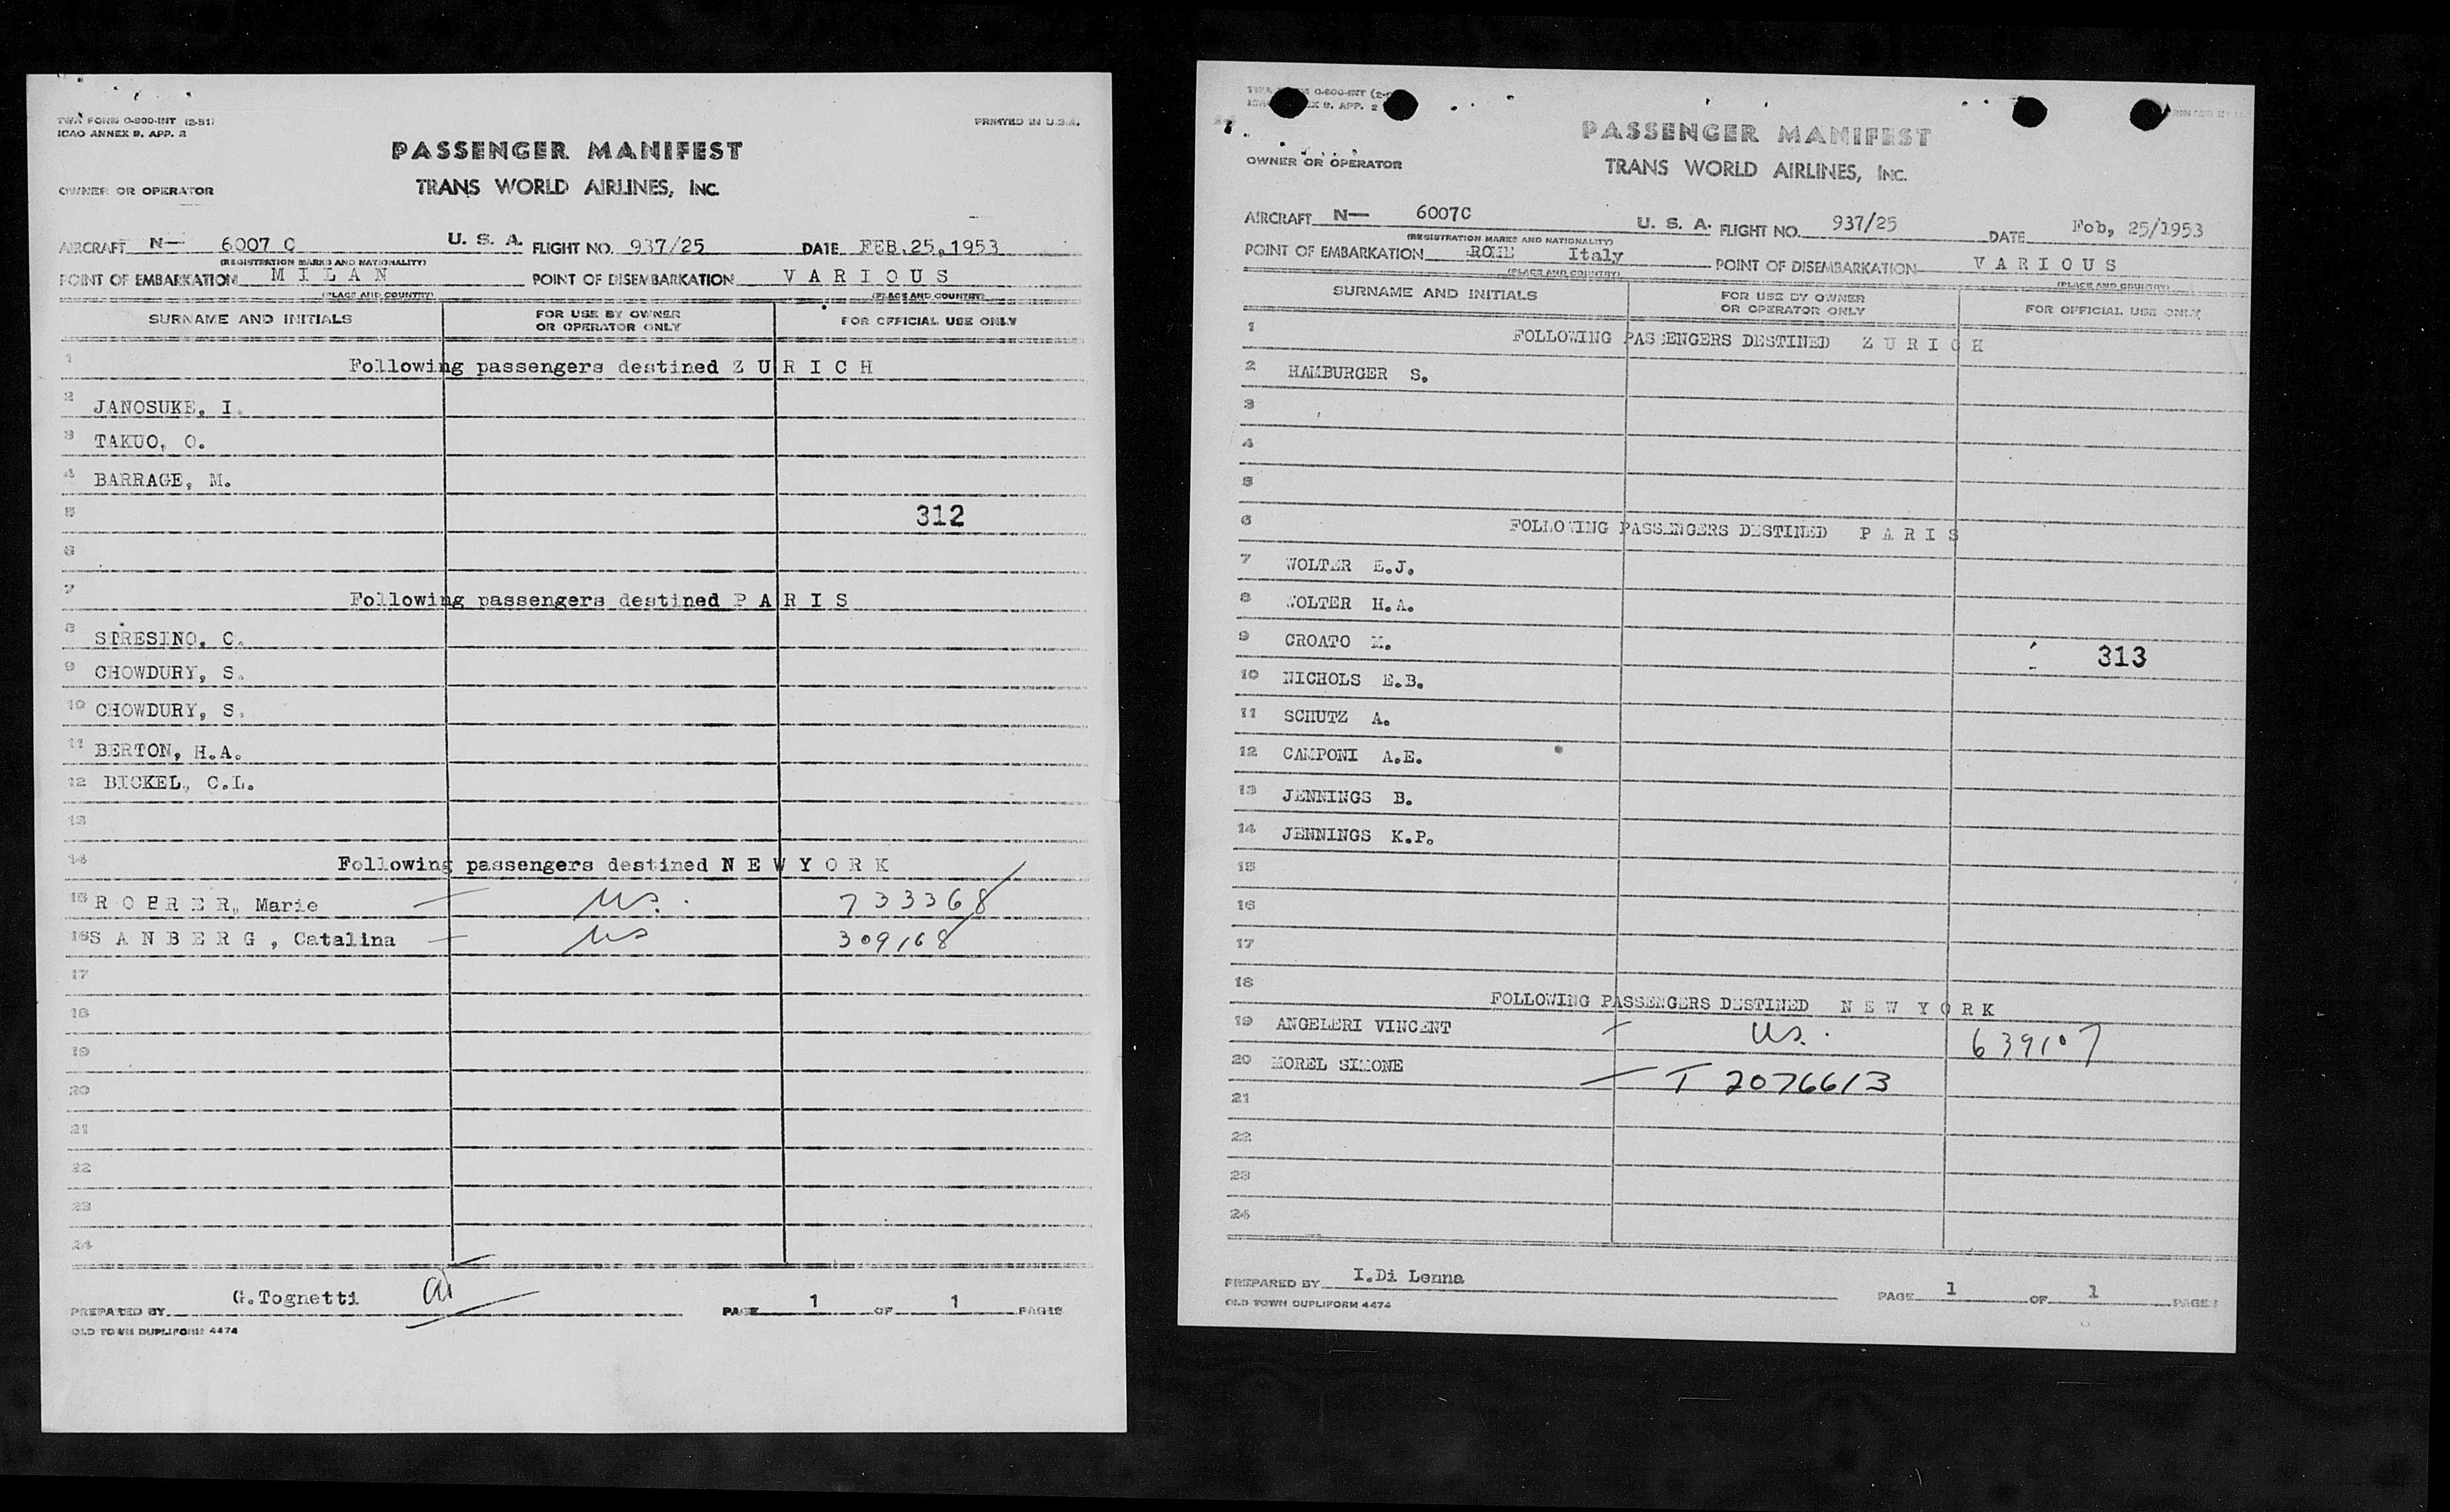 TWA FORM O-800-INT (2-51)
ICAO ANNEX 9, APP. 2
PRINTED IN U.S.A.
PASSENGER MANIFEST
OWNER OR OPERATOR TRANS WORLD AIRLINES, INC.
AIRCRAFT N— 6007 C U. S. A. FLIGHT NO. 937/25 DATE FEB.25,1953
(REGISTRATION MARKS AND NATIONALITY)
POINT OF EMBARKATION M I L A N POINT OF DISEMBARKATION V A R I O U S
(PLACE AND COUNTRY) (PLACE AND COUNTRY)
SURNAME AND INITIALS FOR USE BY OWNER OR OPERATOR ONLY FOR OFFICIAL USE ONLY
1 Following passengers destined Z U R I C H
2 JANOSUKE, I.
3 TAKUO, O.
4 BARRAGE, M.
5 312
6
7 Following passengers destined P A R I S
8 STRESINO, C.
9 CHOWDURY, S.
10 CHOWDURY, S.
11 BERTON, H.A.
12 BICKEL, C.L.
13
14 Following passengers destined N E W Y O R K
15 R O P R E R, Marie — US. 733368
16 S A N B E R G , Catalina — US 309168
17
18
19
20
21
22
23
24
PREPARED BY G.Tognetti PAGE 1 OF 1 PAGES
OLD TOWN DUPLIFORM 4474
TWA FORM O-800-INT
ICAO ANNEX 9, APP. 2
PASSENGER MANIFEST
OWNER OR OPERATOR TRANS WORLD AIRLINES, INC.
AIRCRAFT N— 6007C U. S. A. FLIGHT NO. 937/25 DATE Feb, 25/1953
(REGISTRATION MARKS AND NATIONALITY)
POINT OF EMBARKATION ROME Italy POINT OF DISEMBARKATION V A R I O U S
(PLACE AND COUNTRY) (PLACE AND COUNTRY)
SURNAME AND INITIALS FOR USE BY OWNER OR OPERATOR ONLY FOR OFFICIAL USE ONLY
1 FOLLOWING PASSENGERS DESTINED Z U R I C H
2 HAMBURGER S.
3
4
5
6 FOLLOWING PASSENGERS DESTINED P A R I S
7 WOLTER E.J.
8 WOLTER H.A.
9 CROATO M. 313
10 NICHOLS E.B.
11 SCHUTZ A.
12 CAMPONI A.E.
13 JENNINGS B.
14 JENNINGS K.P.
15
16
17
18 FOLLOWING PASSENGERS DESTINED N E W Y O R K
19 ANGELERI VINCENT — US. 639107
20 MOREL SIMONE — T 2076613
21
22
23
24
PREPARED BY I.Di Lenna PAGE 1 OF 1 PAGES
OLD TOWN DUPLIFORM 4474